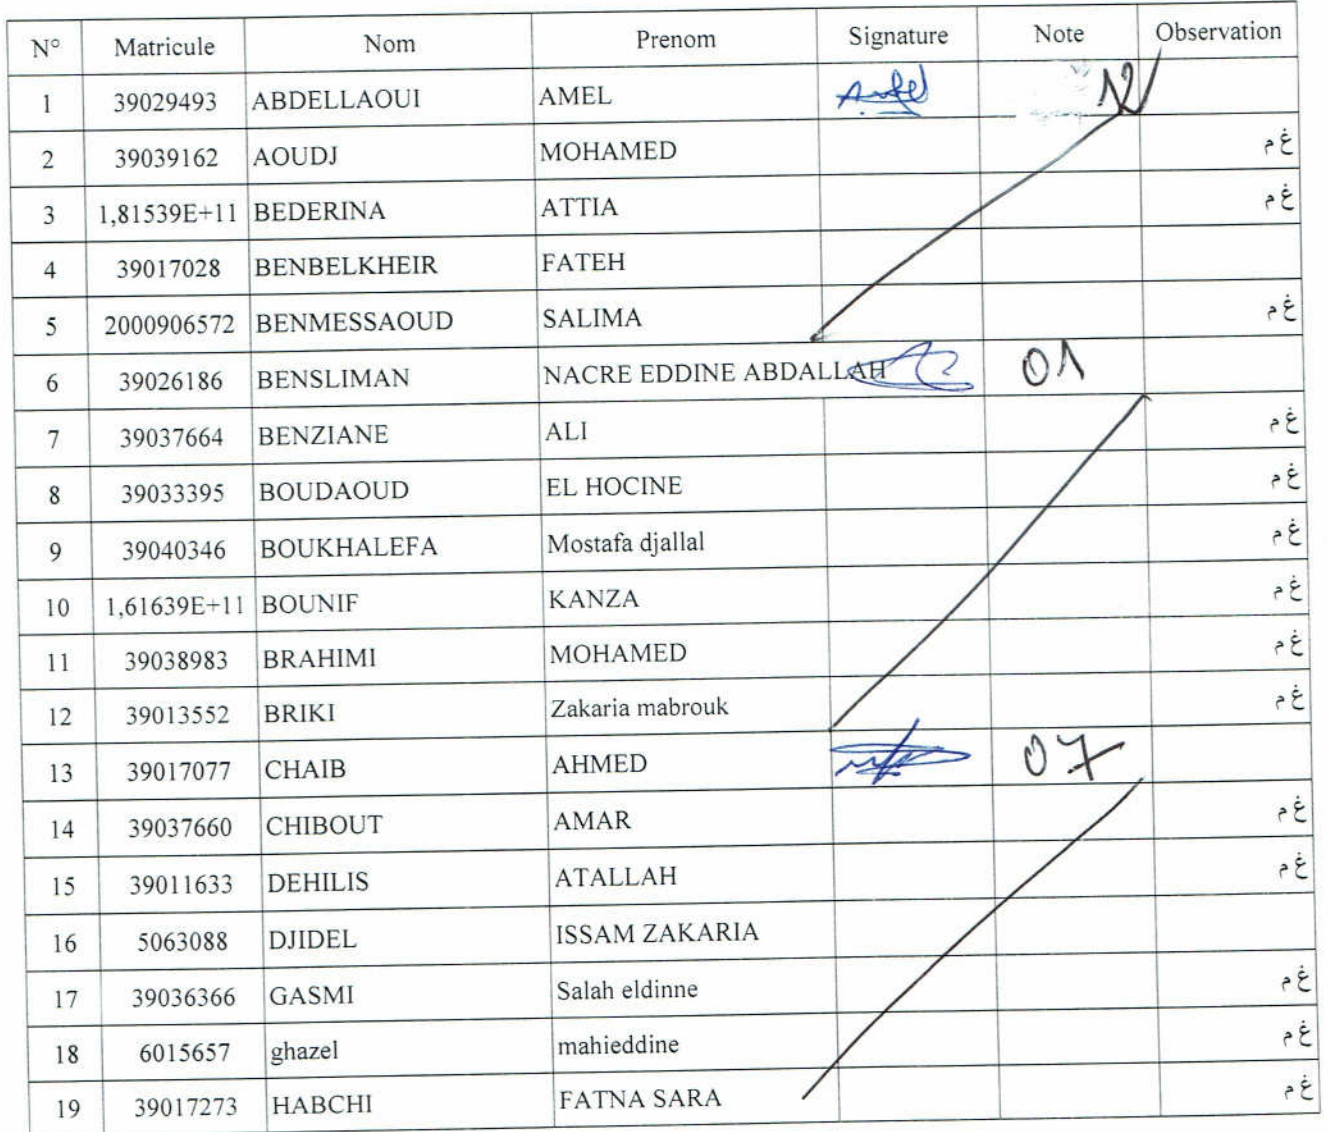 N° Matricule Nom Prenom Signature Note Observation
1 39029493 ABDELLAOUI AMEL 12
2 39039162 AOUDJ MOHAMED غ م
3 1,81539E+11 BEDERINA ATTIA غ م
4 39017028 BENBELKHEIR FATEH
5 2000906572 BENMESSAOUD SALIMA غ م
6 39026186 BENSLIMAN NACRE EDDINE ABDALLAH 01
7 39037664 BENZIANE ALI غ م
8 39033395 BOUDAOUD EL HOCINE غ م
9 39040346 BOUKHALEFA Mostafa djallal غ م
10 1,61639E+11 BOUNIF KANZA غ م
11 39038983 BRAHIMI MOHAMED غ م
12 39013552 BRIKI Zakaria mabrouk غ م
13 39017077 CHAIB AHMED 07
14 39037660 CHIBOUT AMAR غ م
15 39011633 DEHILIS ATALLAH غ م
16 5063088 DJIDEL ISSAM ZAKARIA
17 39036366 GASMI Salah eldinne غ م
18 6015657 ghazel mahieddine غ م
19 39017273 HABCHI FATNA SARA غ م